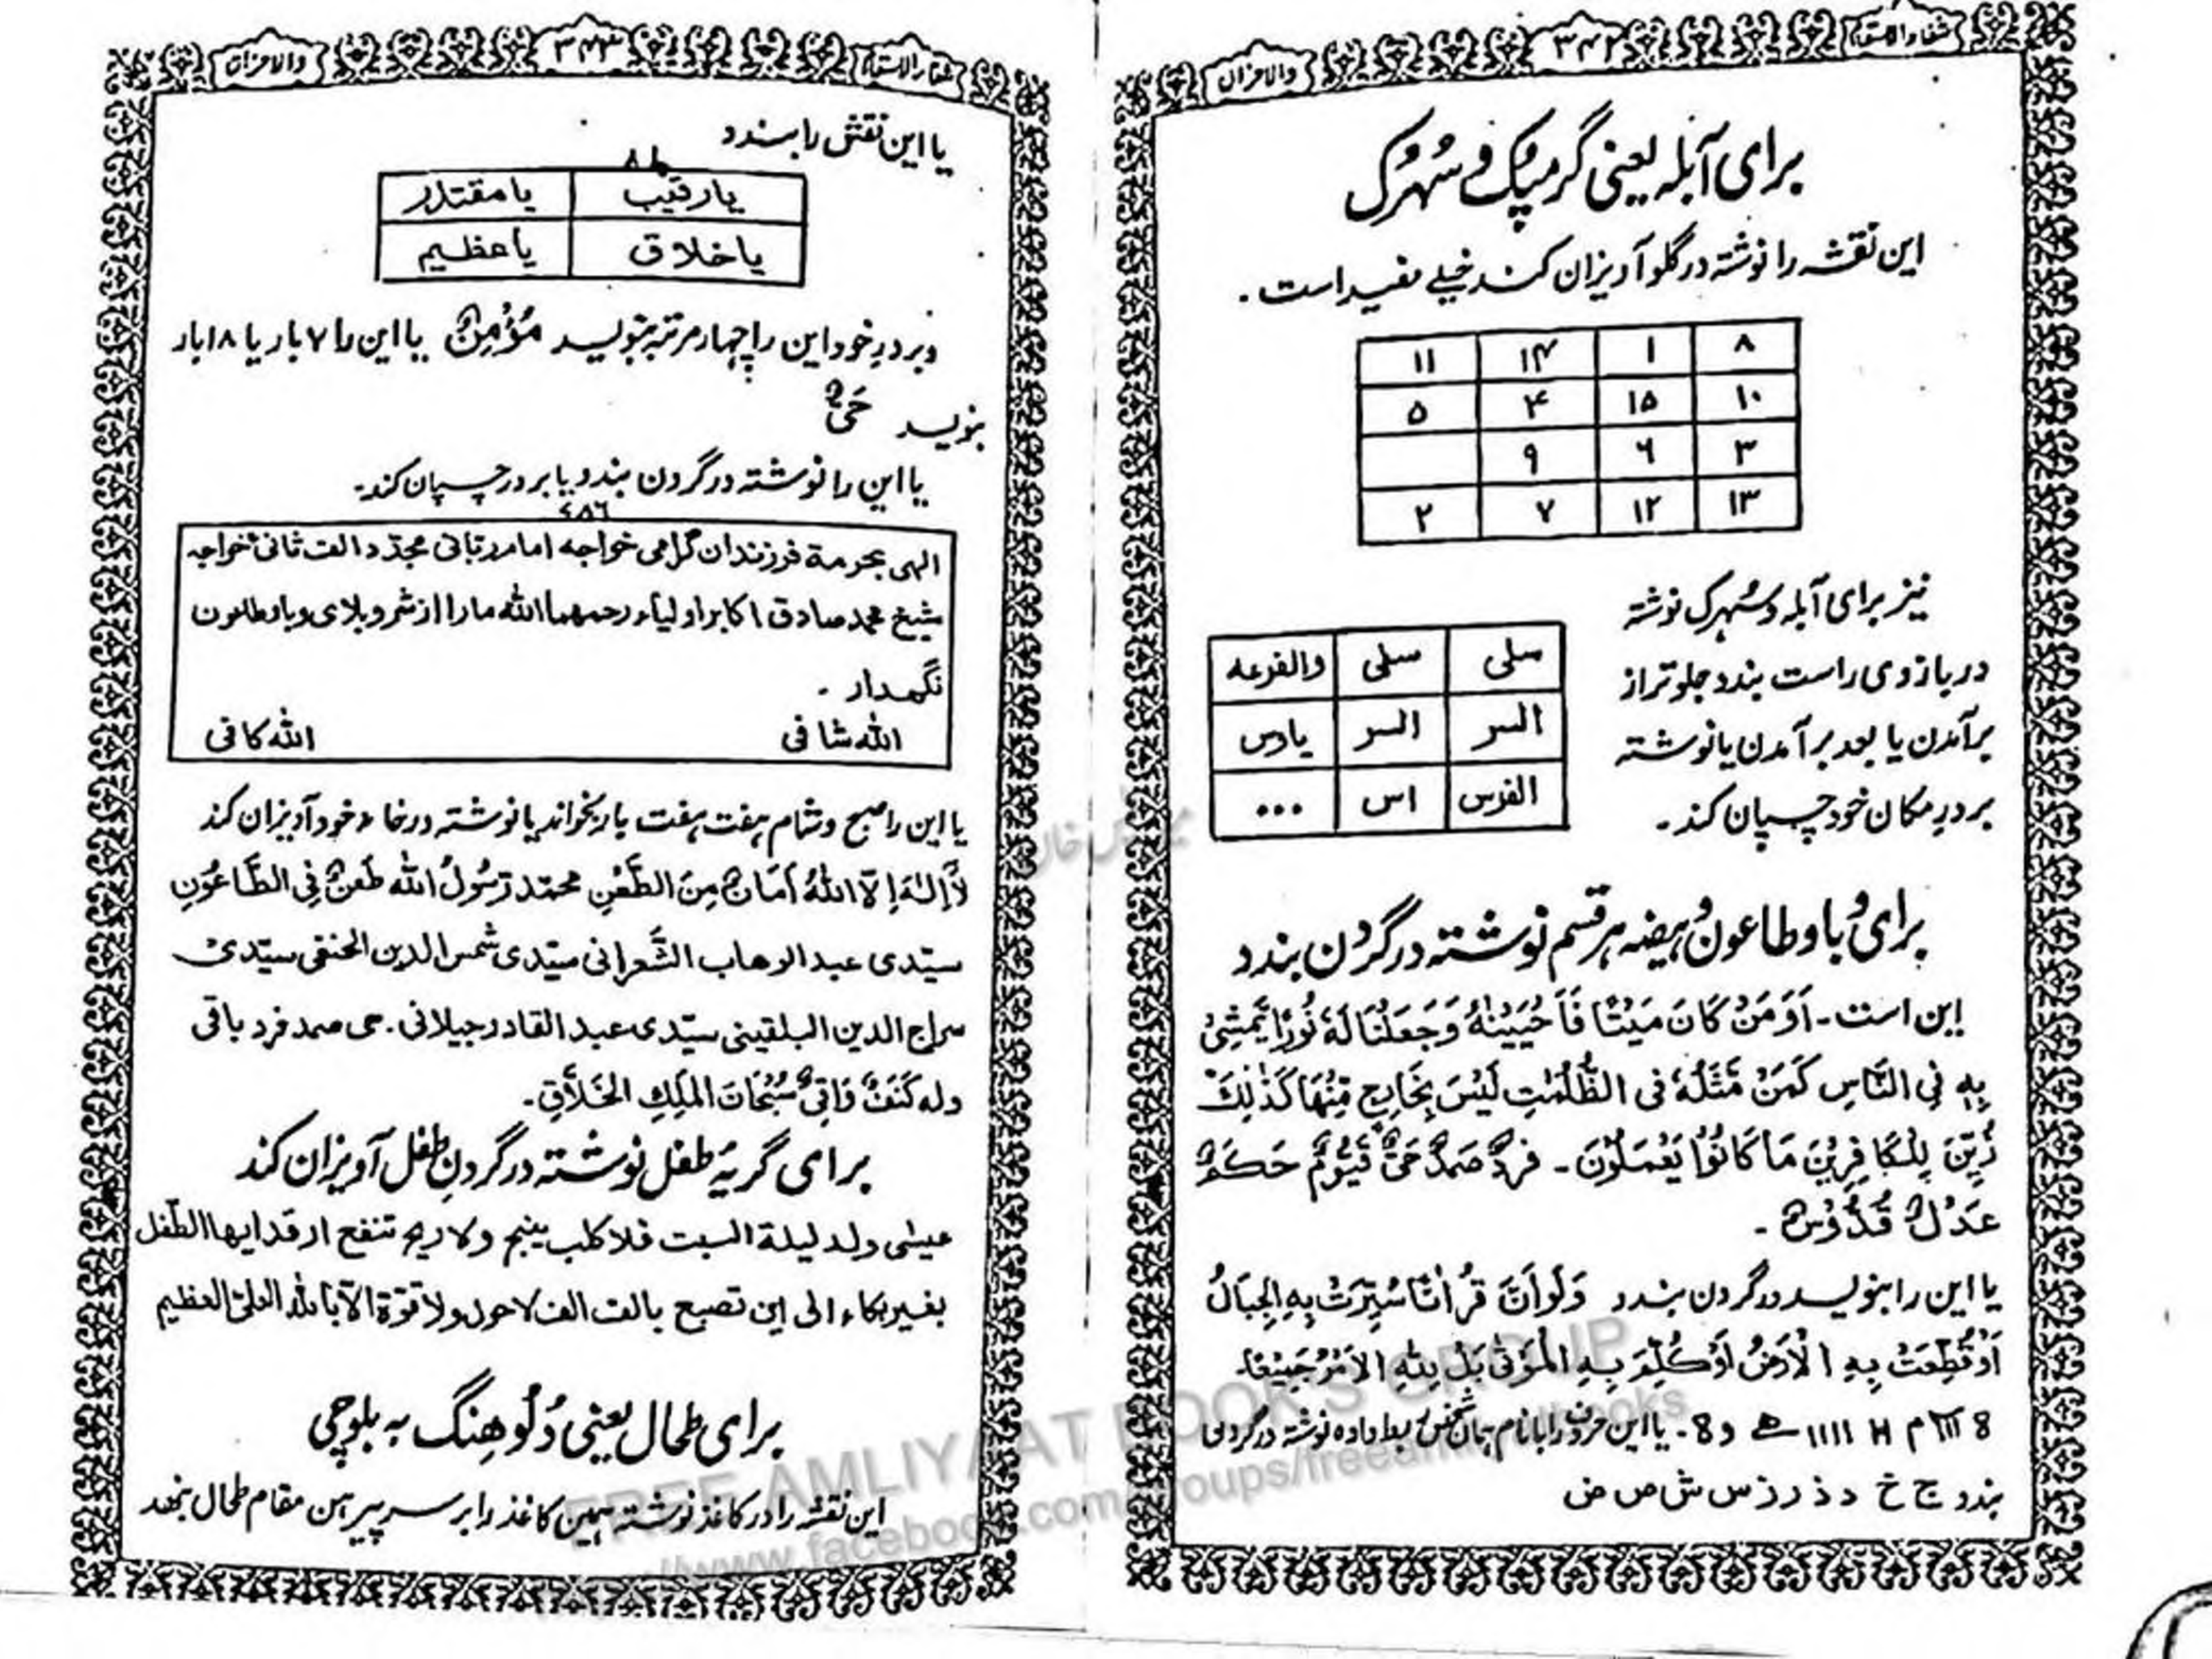 شفاء الاسقام ۳۴۲ والاحزان
برای آبله یعنی گرمپک و سُهرک
این نقشہ را نوشتہ در گلو آویزان کند خیلے مفید است .
۸ ۱ ۱۴ ۱۱
۱۰ ۱۵ ۴ ۵
۳ ۶ ۹
۱۳ ۱۲ ۷ ۲
نیز برای آبله و سُہرک نوشتہ
در بازوی راست بندد جلوتر از
برآمدن یا بعد برآمدن یا نوشتہ
بر درِ مکان خود چسپان کند ۔
سلی سلی والفرعه
السر السر یادس
الفرس اس ...
برای وبا و طاعون و ہیضہ ہر قسم نوشتہ در گردن بندد
این است ۔ اَوَمَنْ كَانَ مَيْتًا فَاَحْيَيْنٰهُ وَجَعَلْنَا لَهٗ نُوْرًا يَّمْشِيْ
بِهٖ فِي النَّاسِ كَمَنْ مَّثَلُهٗ فِى الظُّلُمٰتِ لَيْسَ بِخَارِجٍ مِّنْهَا كَذٰلِكَ
زُيِّنَ لِلْكَافِرِيْنَ مَا كَانُوْا يَعْمَلُوْنَ ۔ فردٌ صَمدٌ حَیٌّ قَیُّومٌ حَکَمٌ
عَدْلٌ قُدُّوْسٌ ۔
یا این را بنویسد در گردن بندد وَلَوْ اَنَّ قُرْاٰنًا سُيِّرَتْ بِهِ الْجِبَالُ
اَوْ قُطِّعَتْ بِهِ الْاَرْضُ اَوْ كُلِّمَ بِهِ الْمَوْتٰى بَلْ لِلّٰهِ الْاَمْرُ جَمِيْعًا ۔
یا این حرف را با نام ہمان شخص بط داده نوشتہ در گردن
بندد ج خ د ذ ر ز س ش ص ض
شفاء الاسقام ۳۴۳ والاحزان
یا این نقش را بندد
یارقیب یامقتدر
یاخلاق یاعظیم
و بر درِ خود این را چہار مرتبہ بنویسد مُؤْمِنٌ یا این را ۷ بار یا ۱۸ بار
بنویسد حَیٌّ
یا این را نوشتہ در گردن بندد یا بر در چسپان کند ۔
۷۸۶
الہی بحرمة فرزندان گرامی خواجه امام ربانی مجدّد الف ثانی خواجه
شیخ محمد صادق اکابر اولیاء رحمهما الله ما را از شر و بلای وبا و طاعون
نگهدار .
الله شافی الله کافی
یا این را صبح و شام ہفت ہفت بار بخواند یا نوشتہ در خانہ خود آویزان کند
لَا اِلٰهَ اِلَّا اللهُ اَمَانٌ مِنَ الطَّعْنِ محمّد رَّسُوْلُ الله طَعنٌ فِى الطَّاعُوْنِ
سیّدی عبد الوهاب الشَّعرانی سیّدی شمس الدین الحنفی سیّدی
سراج الدین البلقینی سیّدی عبد القادر جیلانی . حی صمد فرد باقی
وله كَنَفٌ وَاقِىٌ سُبْحَانَ المَلِكِ الخَلَّاقِ ۔
برای گریۂ طفل نوشتہ در گردنِ طفل آویزان کند
عیسٰی ولد لیلة السبت فلا کلب ینبح ولا ریح تنفع ارقد ایها الطّفل
بغیر بکاء الی این تصبح بالف الف لاحول ولا قوّة الّا بالله العلیّ العظیم
برای طحال یعنی دُلُو هِنگ به بلوچی
این نقشہ را در کاغذ نوشتہ ہمین کاغذ را بر سر پیرہن مقام طحال بنهد
FREE AMLIYAAT BOOKS GROUP
//www.facebook.com/groups/freeamliyatbooks